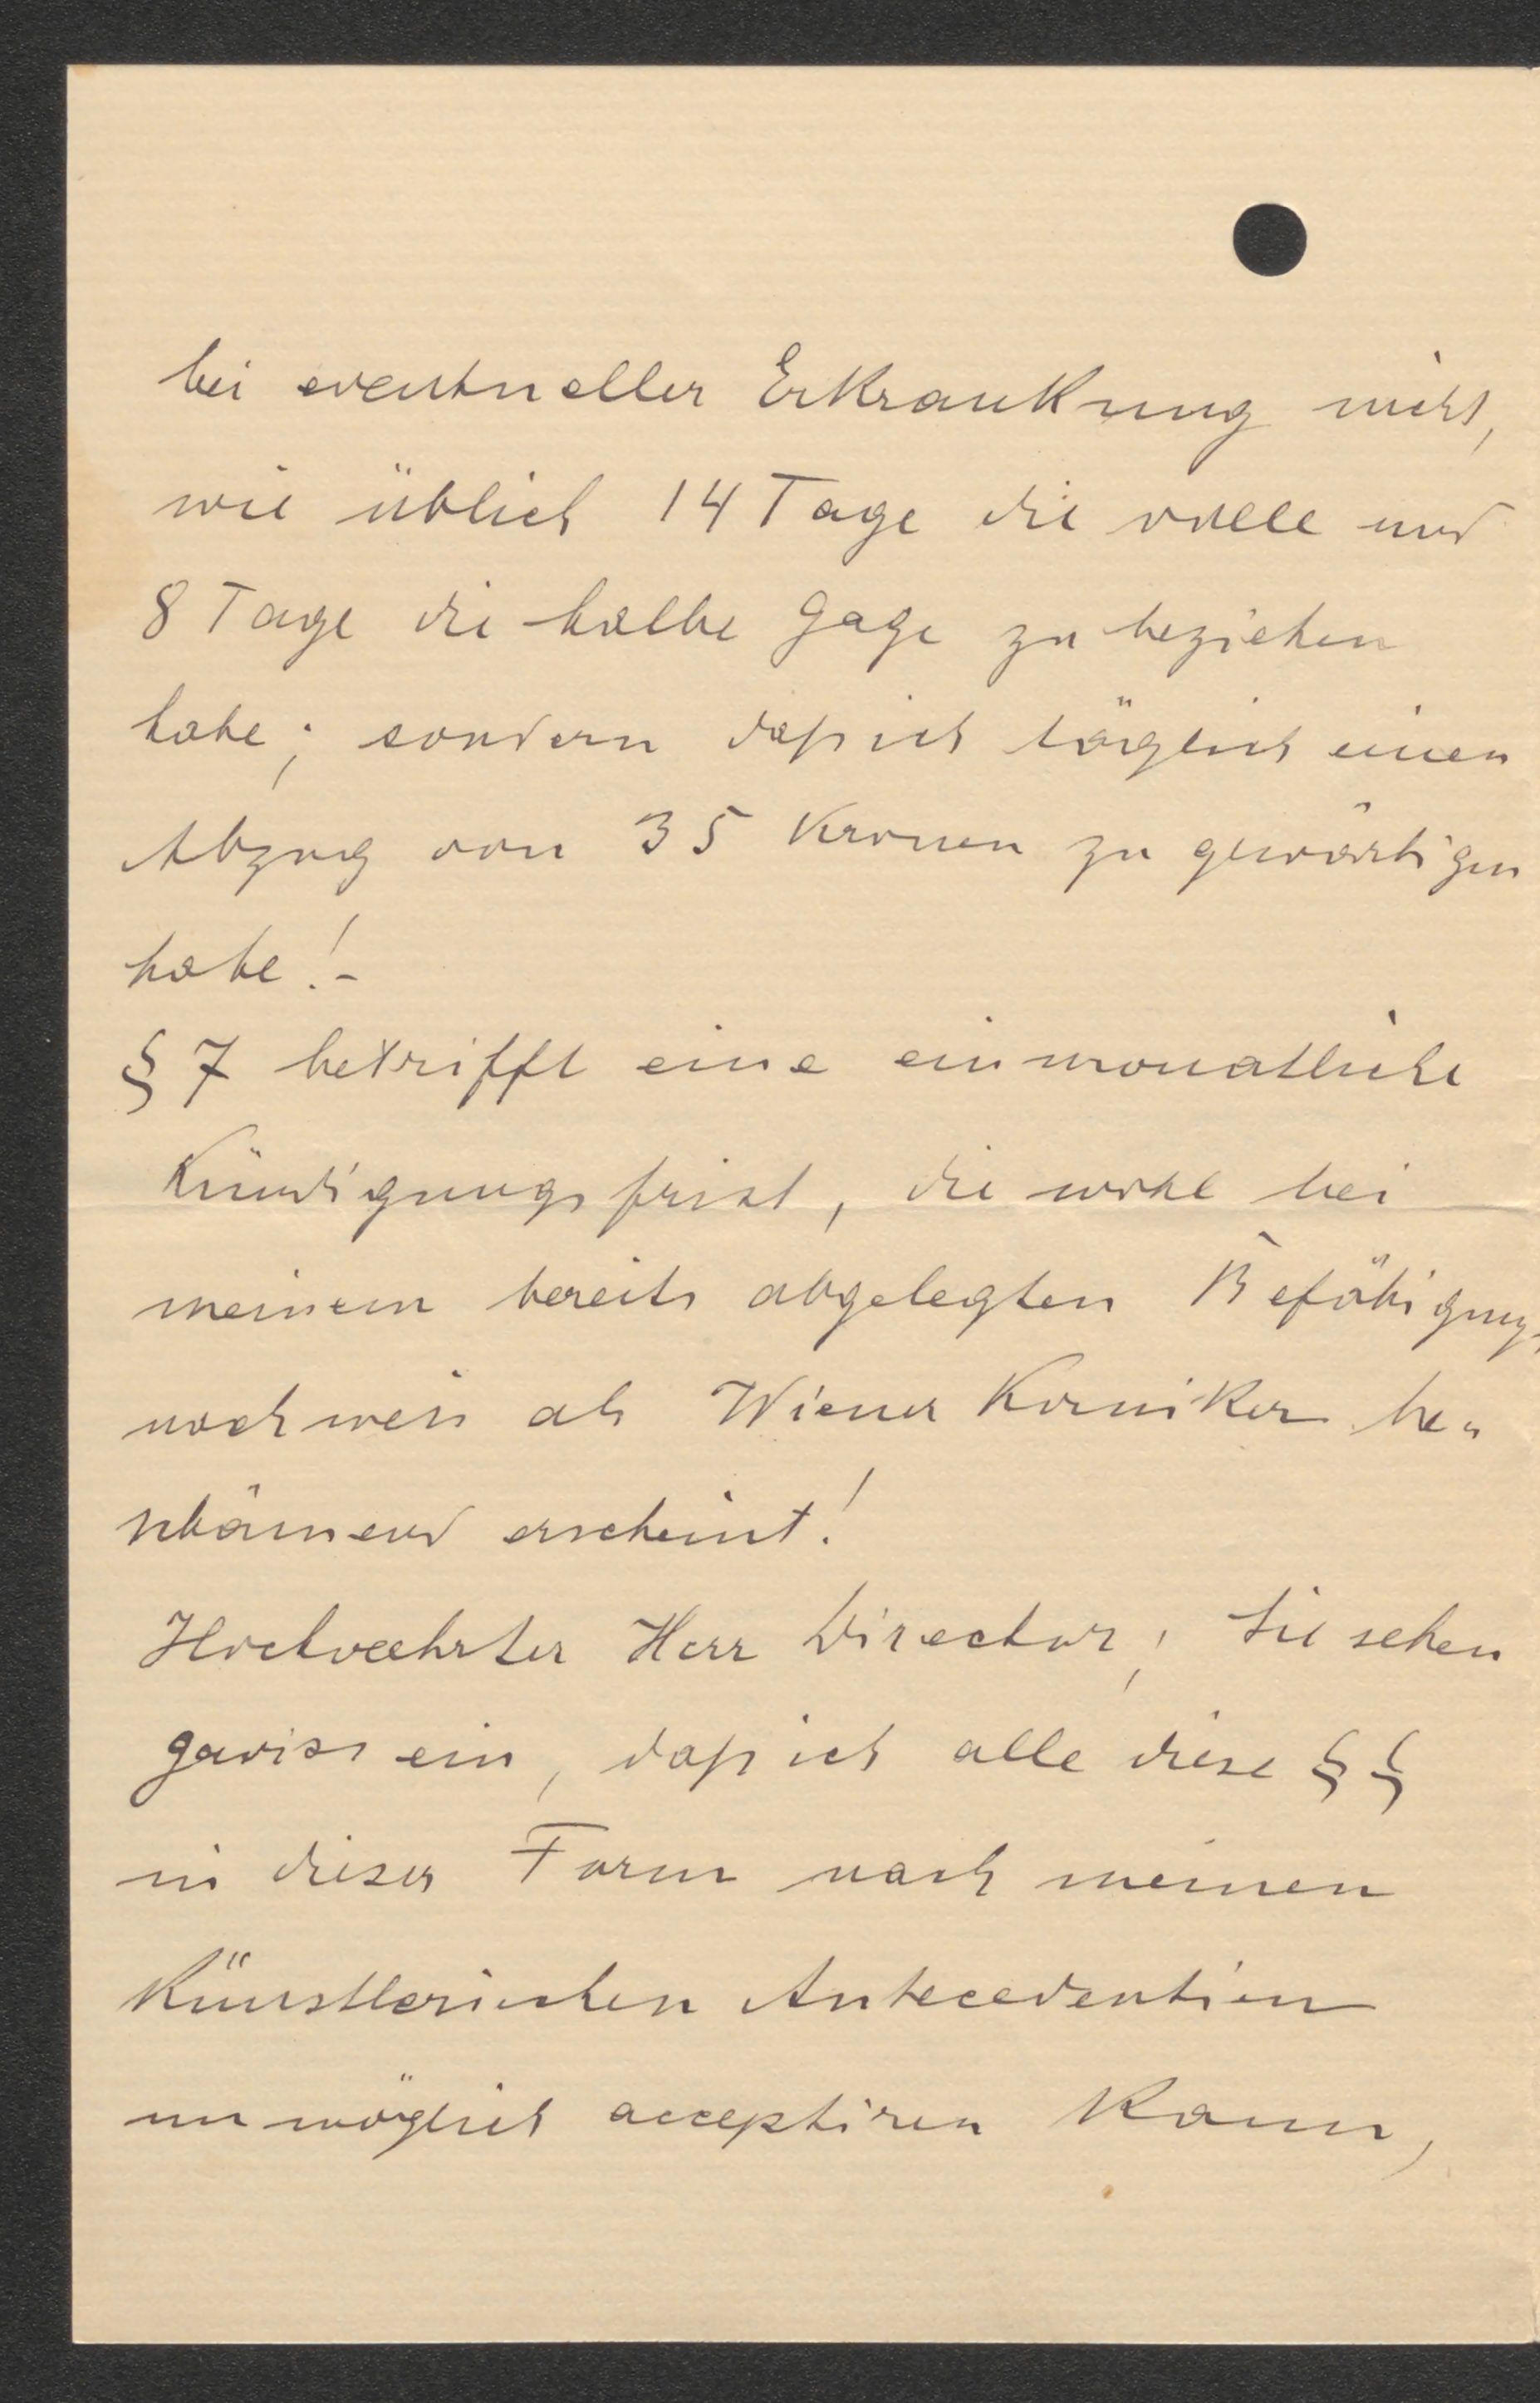 bei eventueller Erkrankung nicht,
wie üblich 14 Tage die volle und
8 Tage die halbe Gage zu beziehen
habe; sondern daß ich täglich einen
Abzug von 35 Kronen zu gewärtigen
habe! –
§ 7 betrifft eine einmonatliche
Kündigungsfrist, die wohl bei
meinem bereits abgelegten Befähigungs
nachweis als Wiener Komiker be„
schämend erscheint!
Hochverehrter Herr Director; Sie sehen
gewiss ein, daß ich alle diese § §
in dieser Form nach meinen
Künstlerischen Antecedentien
unmöglich acceptiren kann,